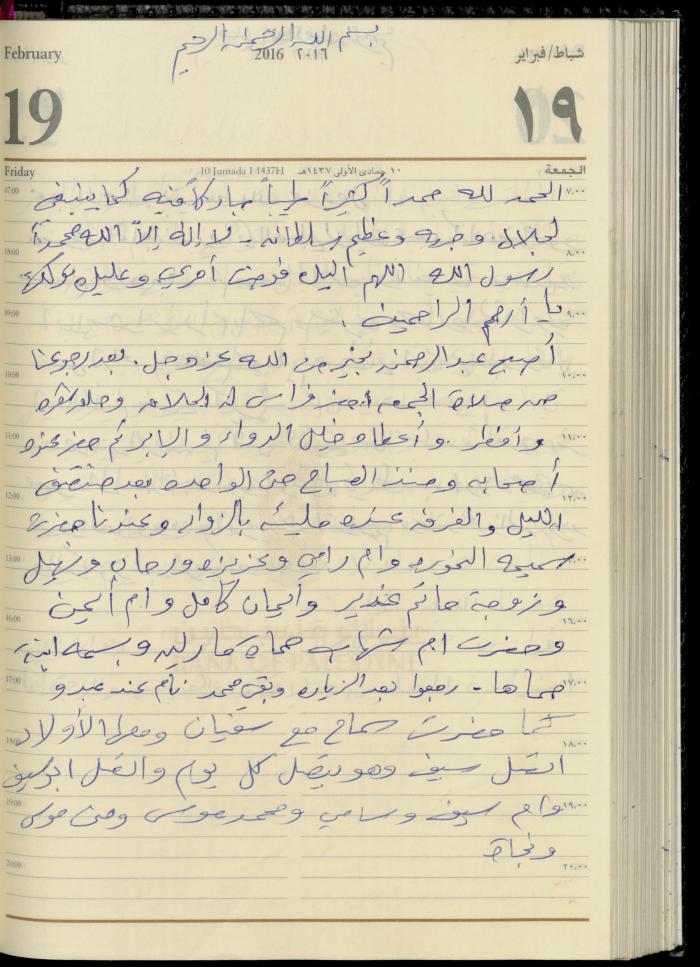 بسم الله الرحمن الرحيم
February 2016 ٢٠١٦ شباط/فبراير
19 ١٩
Friday 10 Jumada I 1437H ١٠ جمادى الأولى ١٤٣٧هـ الجمعة
07:00 الحمد لله حمداً كثيراً طيباً مباركاً فيه كما ينبغي ٧,٠٠
لجلال وجهه وعظيم سلطانه - لا إله إلا الله محمد
08:00 ٨,٠٠
رسول الله اللهم اليك فوضت أمري وعليك توكلت
09:00 يا أرحم الراحمين . ٩,٠٠
أصبح عبد الرحمن بخير من الله عز وجل . بعد رجوعنا
10:00 ١٠,٠٠
من صلاة الجمعة احضر فراس له الحلاق وحلق شعره
11:00 وأفطر . وأعطاه خليل الدواء والإبر ثم حضر عنده ١١,٠٠
أصحابه ومنذ الصباح حتى الواحدة بعد منتصف
12:00 ١٢,٠٠
الليل والغرفة عنده مليئة بالزوار وعندنا حضرت
13:00 سميحه وام رامي وعزيزه ورجاء ونهيل
وزوجة حاتم غدير وأيمان كامل وام أيمن
16:00 ١٦,٠٠
وحضرت ام شهاب حماة مارلين وبسمه ابنة
17:00 حماها - رجعوا بعد الزياره وبقي محمد نام عند عبدو ١٧,٠٠
كما حضرت سماح مع سفيان ومعها الأولاد
18:00 ١٨,٠٠
اتصل سيف وهو يتصل كل يوم واتصل ابو سيف
19:00 وام سيف وسامي ومحمد موسى ومنى موسى ١٩,٠٠
ونجاة
20:00 ٢٠,٠٠
BANK OF PALESTINE